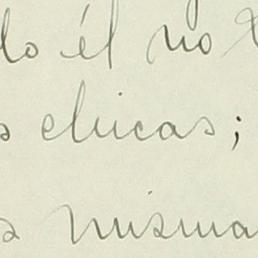 do él no
chicas;
misma